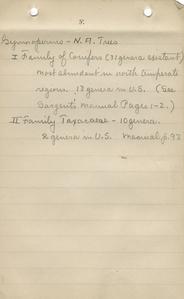 8.
Gymnosperms - N. A. Trees
I Family of Conifers (31 genera existant)
most abundant in north temperate
region. 18 genera in U.S. (See
Sargent's Manual Pages 1-2.)
II Family Taxaceae - 10 genera.
2 genera in U.S. Manual, p. 93